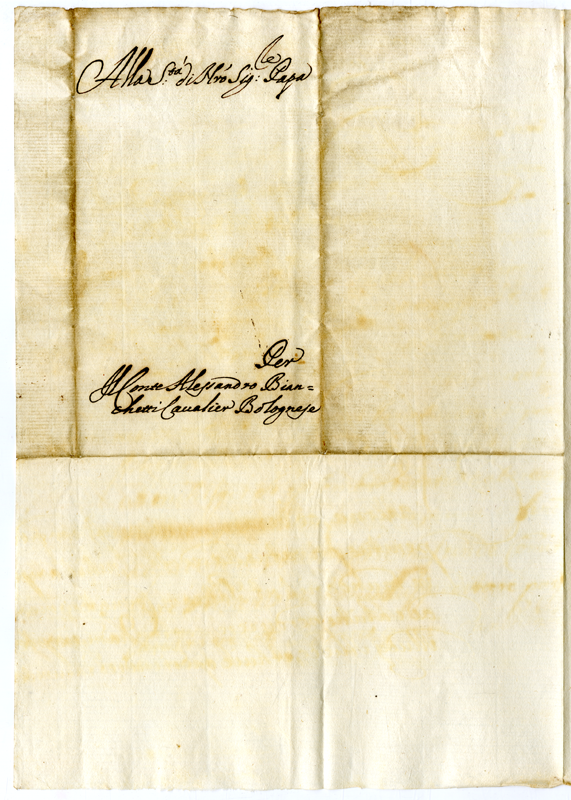 Alla S.tà di Nrō Sig.re Papa
Per
Il Conte Alessandro Bian=
chetti Caualier Bolognese